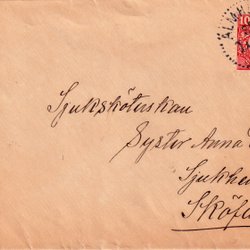 10
ÄLMH
Sjuksköterskan
Syster Anna
Sjukhe
Sköf